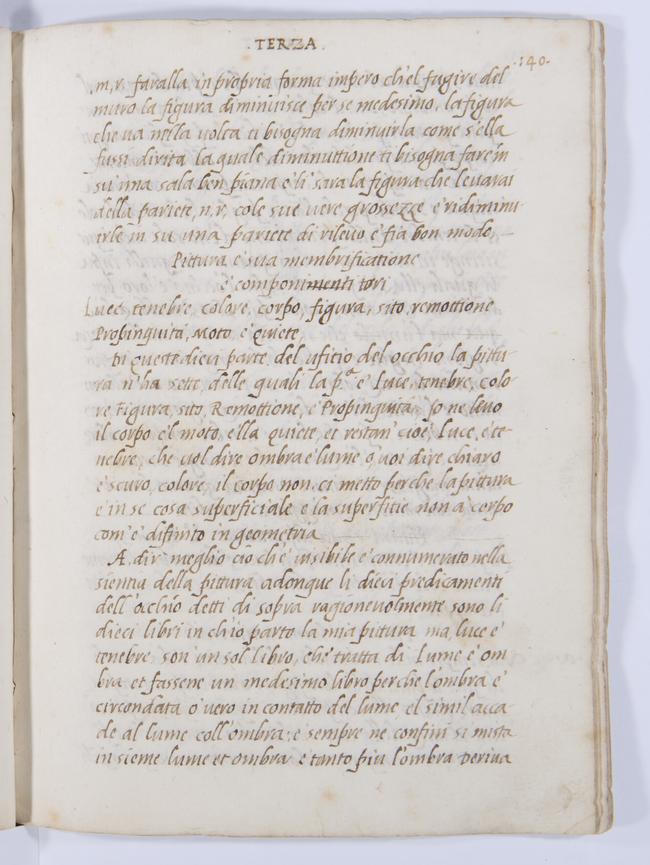 .TERZA.
.140.
.m, r. faralla in propria forma impero ch'el fugire del
muro la figura diminuisce per se medesimo, la figura
che va nella volta ti bisogna diminuirla come s'ella
fussi dirita la quale diminuttione ti bisogna fare in
su una sala ben piana e li sara la figura che levarai
della pariete, n, r, cole sue vere grossezze e ridiminu
irle in su una pariete di rilevo e fia bon modo,
Pittura e sua membrificatione
e componimenti tori
Luce, tenebre, colore, corpo, figura, sito, remottione
Propinquità, Moto, e quiete
Di queste dieci parte, del uficio del occhio la pittu
ra n'ha sette, delle quali la p.ª e Luce, tenebre, colo
re Figura, sito, Remottione, e Propinquita, Jo ne levo
il corpo e'l moto, e lla quiete, et restan' cioe, Luce, e te
nebre, che vol dire ombra e lume o, voi dire chiaro
e scuro, colore, il corpo non ci metto perche la pittura
e in se cosa superficiale e la superfitie non a corpo
com'e difinito in geometria
A dir' meglio cio ch'e visibile e connumerato nella
sientia della pittura adonque li dieci predicamenti
dell'ochio detti di sopra ragionevolmente sono li
dieci libri in ch'io parto la mia pitura ma, luce e
tenebre, son' un sol libro, che tratta di Lume e om
bra et fassene un medesimo libro perche l'ombra e
circondata o vero in contatto del lume el simil acca
de al lume coll'ombra, e sempre ne confini si mista
insieme lume et ombra e tanto piu l'ombra deriva